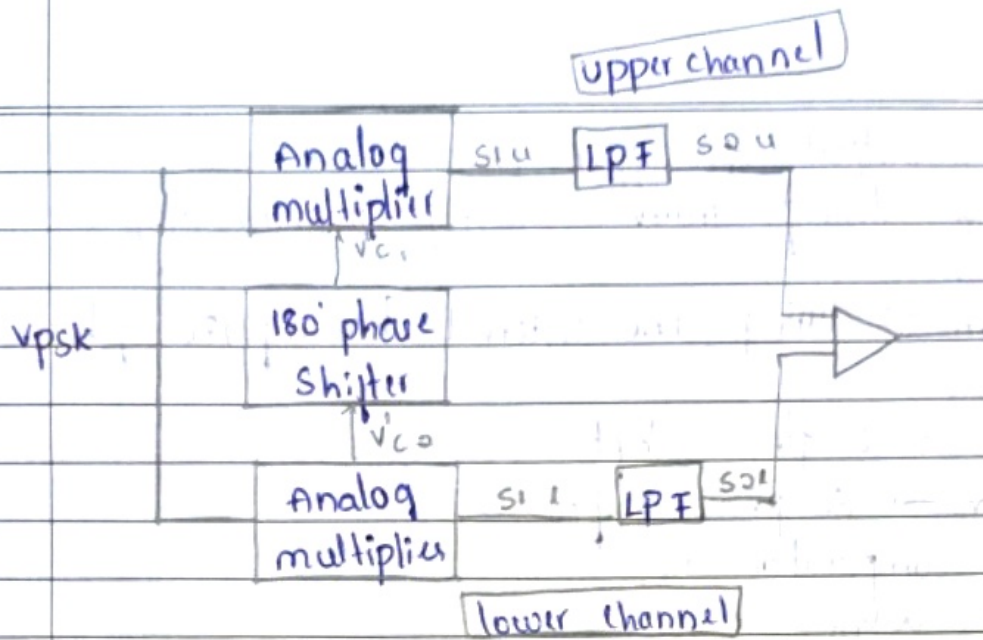 upper channel
Analog
multiplier
S1u
LPF
S2u
Vc1
180° phase
Shifter
Vpsk
Vc2
Analog
multiplier
S1l
LPF
S2l
lower channel